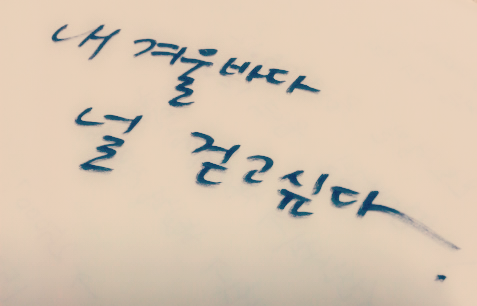 내 겨울바다
널 걷고싶다.